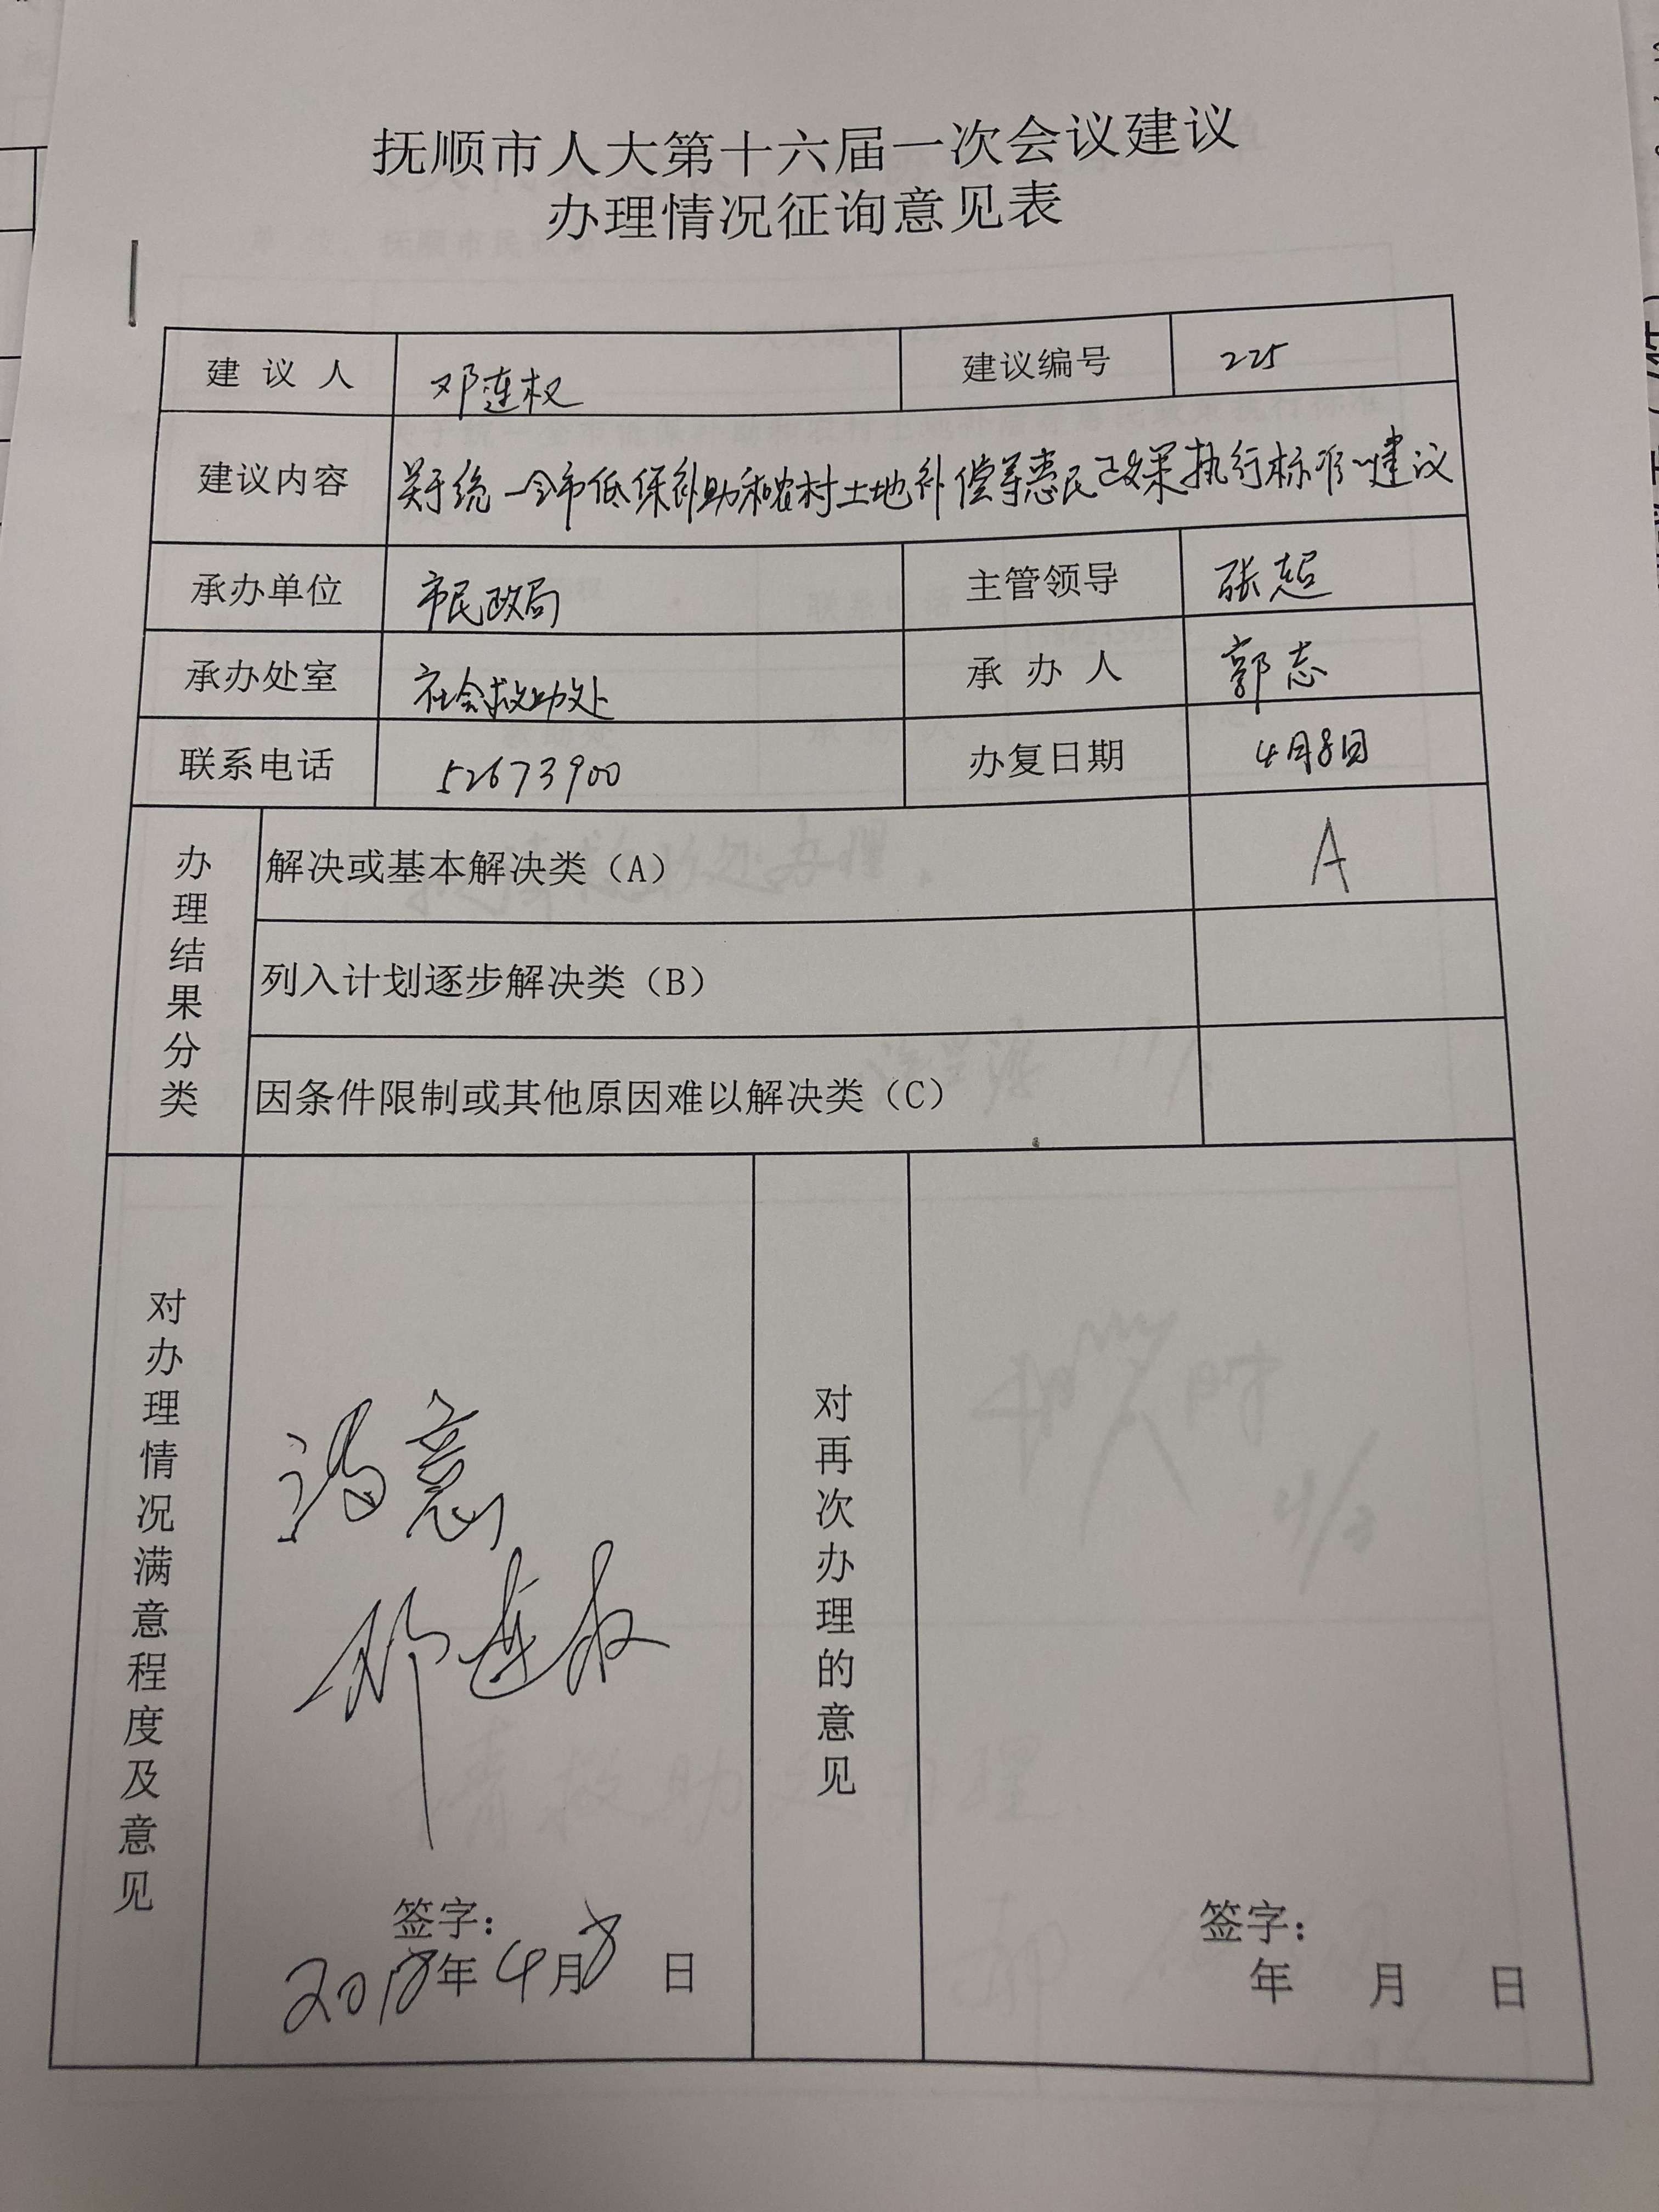 抚顺市人大第十六届一次会议建议
办理情况征询意见表
建议人 邓连权 建议编号 225
建议内容 关于统一全市低保补助和农村土地补偿等惠民政策执行标准的建议
承办单位 市民政局 主管领导 张超
承办处室 社会救助处 承办人 郭志
联系电话 52673900 办复日期 4月8日
办理结果分类
解决或基本解决类（A） A
列入计划逐步解决类（B）
因条件限制或其他原因难以解决类（C）
对办理情况满意程度及意见
满意
邓连权
签字：
2018年4月8日
对再次办理的意见
签字：
年 月 日